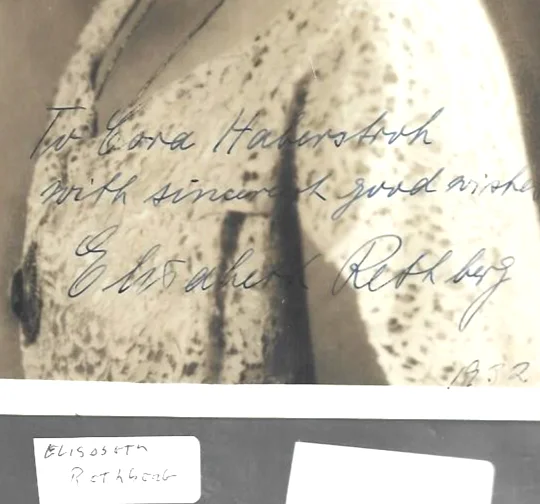 To Cora Haberstroh
with sincerest good wishe
Elisabeth Rethberg
1932
ELISABETH
RETHBERG